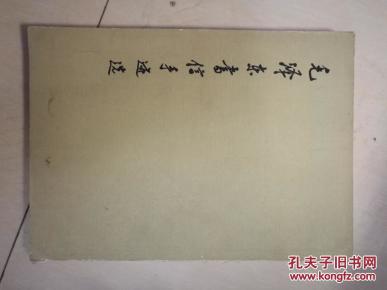 毛泽东书信手迹选
孔夫子旧书网